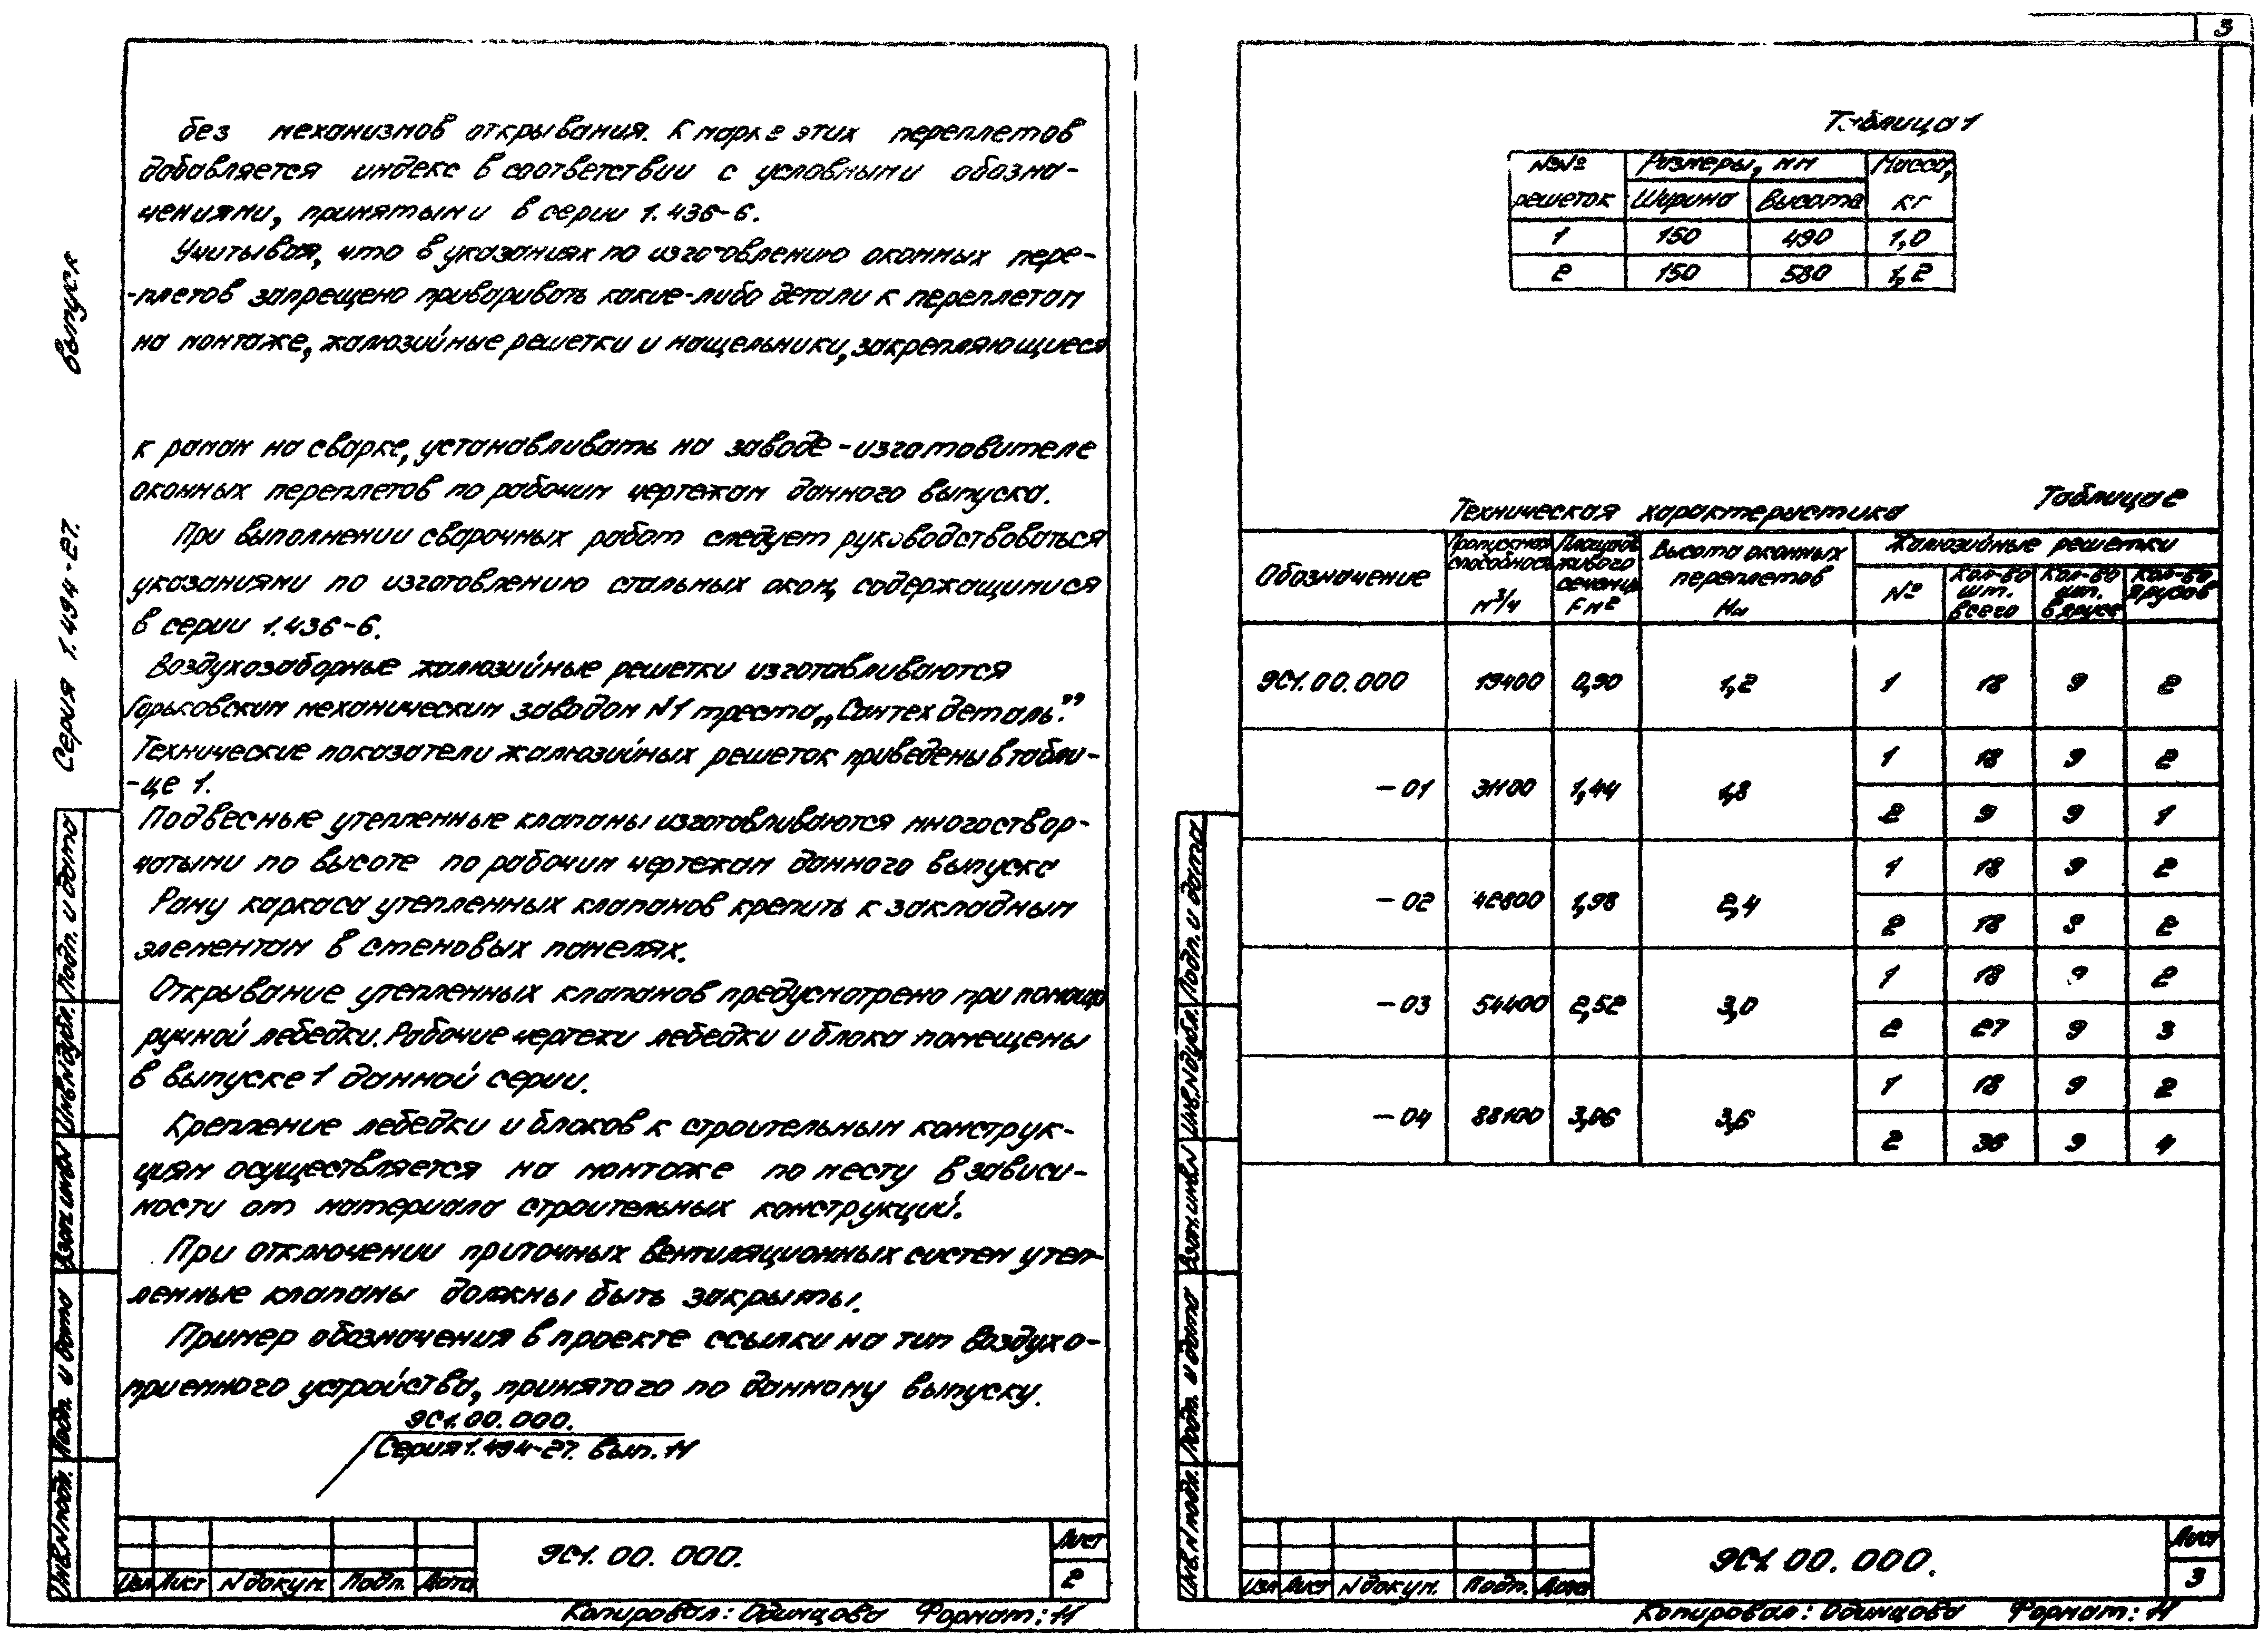 без механизмов открывания. К марке этих переплетов
добавляется индекс в соответствии с условными обозна-
чениями, принятыми в серии 1.436-6.
Учитывая, что в указаниях по изготовлению оконных пере-
-плетов запрещено приваривать какие-либо детали к переплетам
на монтаже, жалюзийные решетки и нащельники, закрепляющиеся
к рамам на сварке, устанавливать на заводе-изготовителе
оконных переплетов по рабочим чертежам данного выпуска.
При выполнении сварочных работ следует руководствоваться
указаниями по изготовлению стальных окон, содержащимися
в серии 1.436-6.
Воздухозаборные жалюзийные решетки изготавливаются
Горьковским механическим заводом N1 треста „Сантехдеталь".
Технические показатели жалюзийных решеток приведены в табли-
-це 1.
Подвесные утепленные клапаны изготовливаются многоствор-
чатыми по высоте по рабочим чертежам данного выпуска
Раму каркаса утепленных клапанов крепить к закладным
элементам в стеновых панелях.
Открывание утепленных клапанов предусмотрено при помощи
ручной лебедки. Рабочие чертежи лебедки и блока помещены
в выпуске 1 данной серии.
Крепление лебедки и блоков к строительным конструк-
циям осуществляется на монтаже по месту в зависи-
мости от материала строительных конструкций.
При отключении приточных вентиляционных систем утеп-
ленные клапаны должны быть закрыты.
Пример обозначения в проекте ссылки на тип воздухо-
приемного устройства, принятого по данному выпуску.
9С1.00.000.
Серия 1.494-27. Вып. 11
Серия 1.494-27. Выпуск
Инв.N подл. Подп. и дата Взам.инв.N Инв.N дубл. Подп. и дата
Изм Лист N докум. Подп. Дата
9С1. 00. 000.
Лист
2
Копировал: Одинцова Формат: 11
3
Таблица 1
№№ решеток Размеры, мм Масса, кг
Ширина Высота
1 150 490 1,0
2 150 580 1,2
Таблица 2
Техническая характеристика
Обозначение
Пропускная способность м³/ч
Площадь живого сечения F м²
Высота оконных переплетов Нм
Жалюзийные решетки
№ Кол-во шт. всего Кол-во шт. в ярусе Кол-во ярусов
9С1.00.000 19400 0,90 1,2 1 18 9 2
-01 31100 1,44 1,8 1 18 9 2
2 9 9 1
-02 42800 1,98 2,4 1 18 9 2
2 18 9 2
-03 54400 2,52 3,0 1 18 9 2
2 27 9 3
-04 88100 3,06 3,6 1 18 9 2
2 36 9 4
Инв.N подл. Подп. и дата Взам.инв.N Инв.N дубл. Подп. и дата
Изм Лист N докум. Подп. Дата
9С1. 00. 000.
Лист
3
Копировал: Одинцова Формат: 11